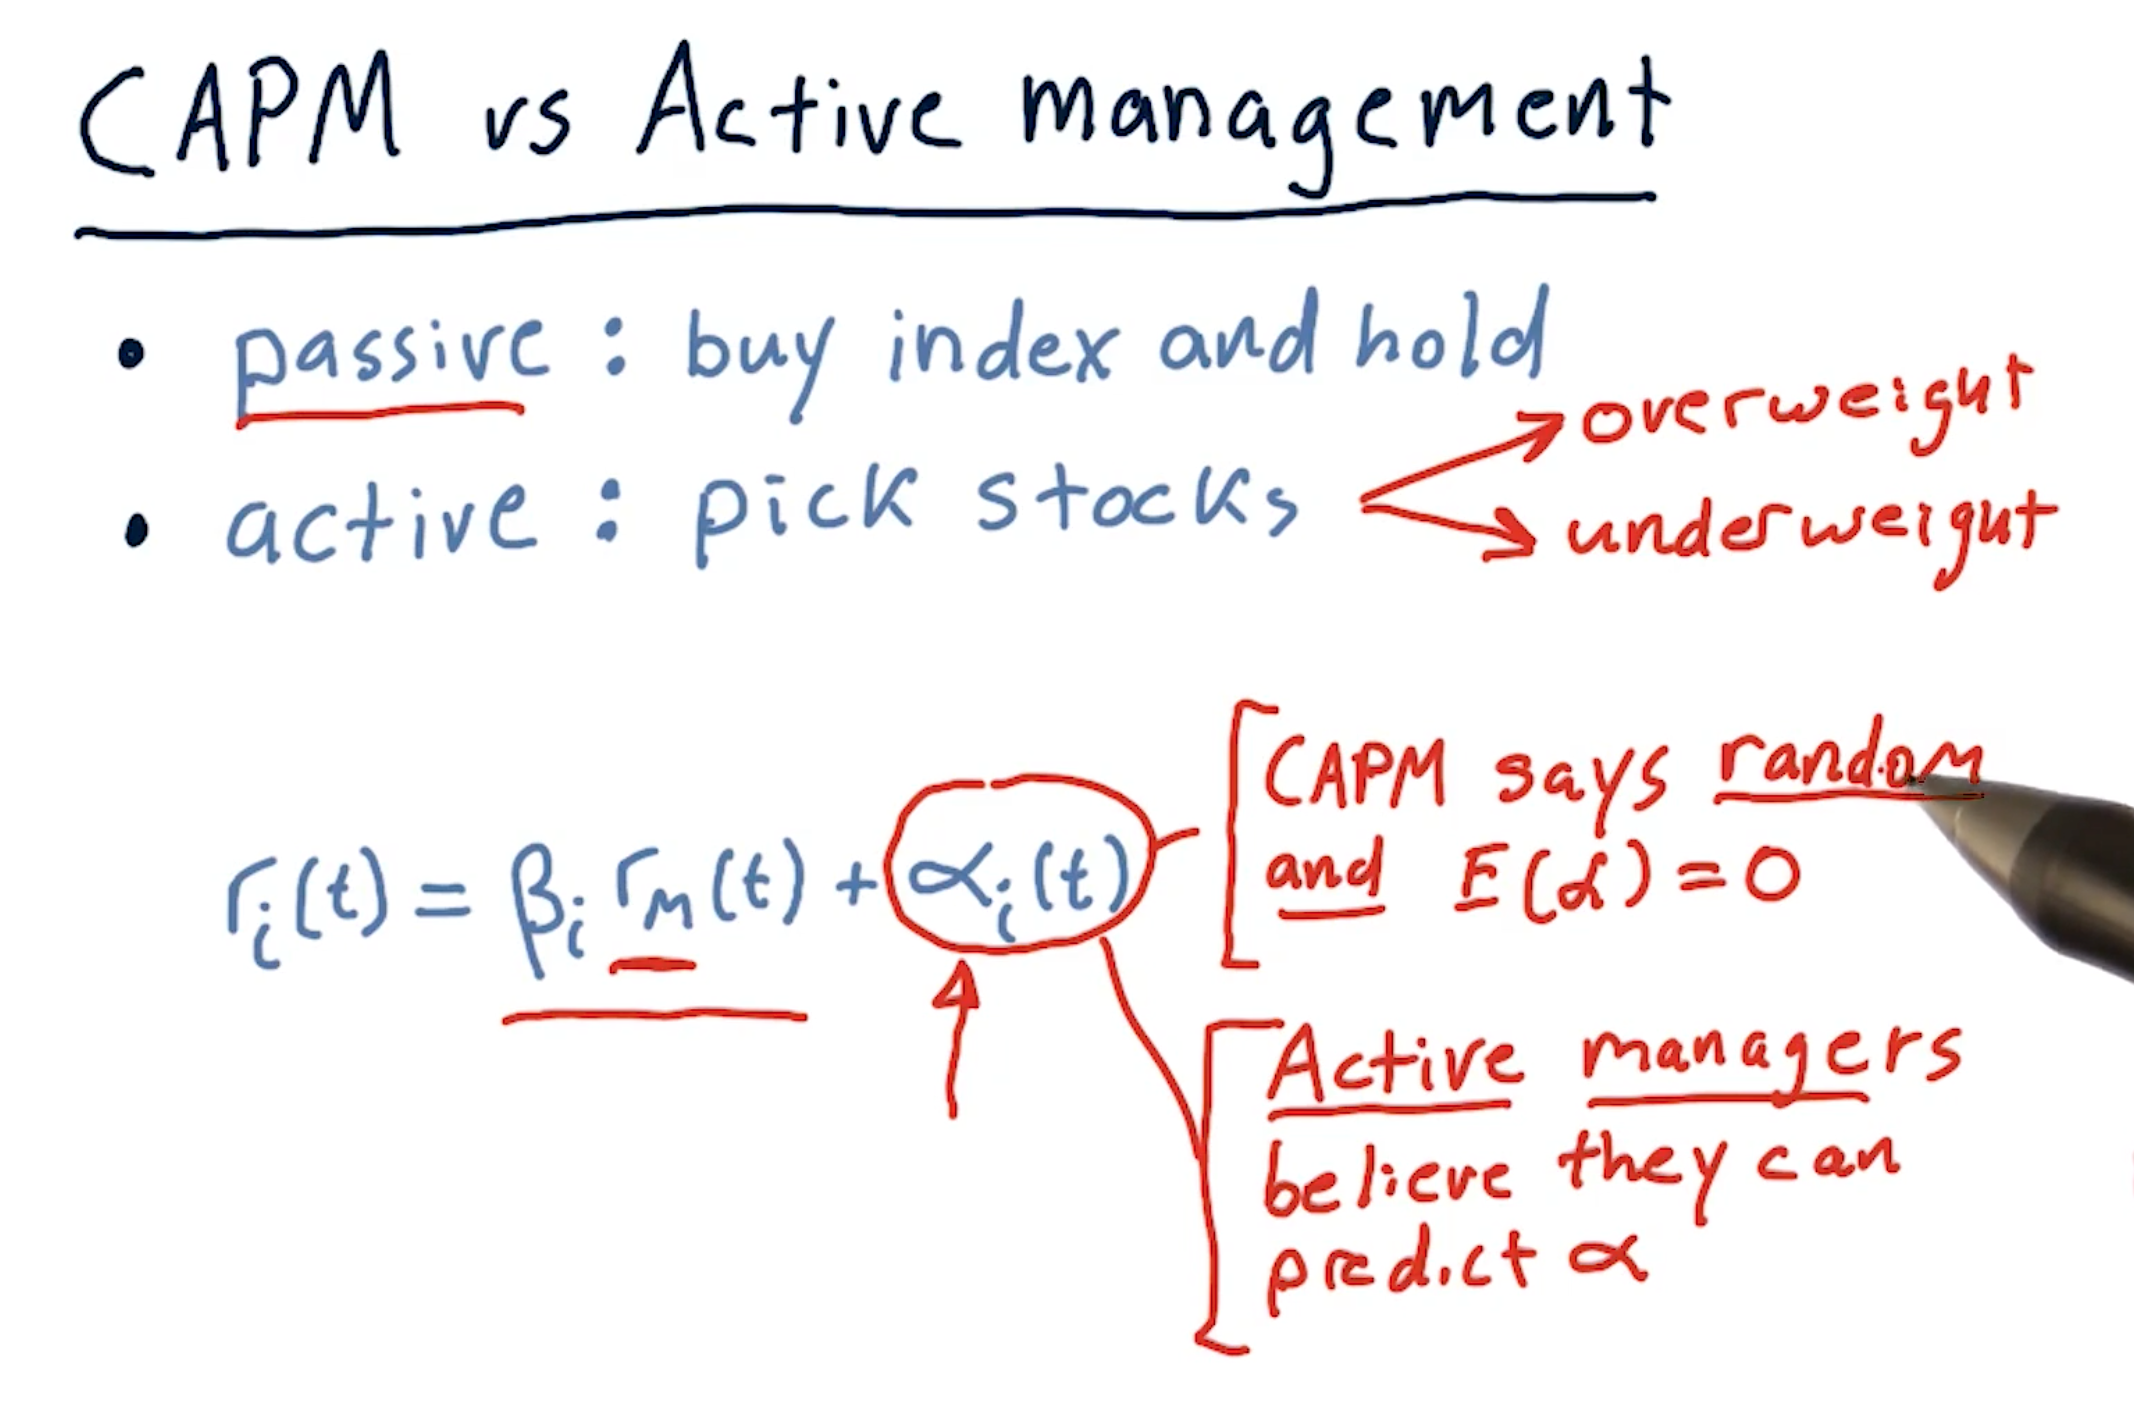 CAPM vs Active management
• passive : buy index and hold
• active : pick stocks
overweigut
underweigut
rᵢ(t) = βᵢ rₘ(t) + αᵢ(t)
CAPM says random
and E(α) = 0
Active managers
believe they can
predict α